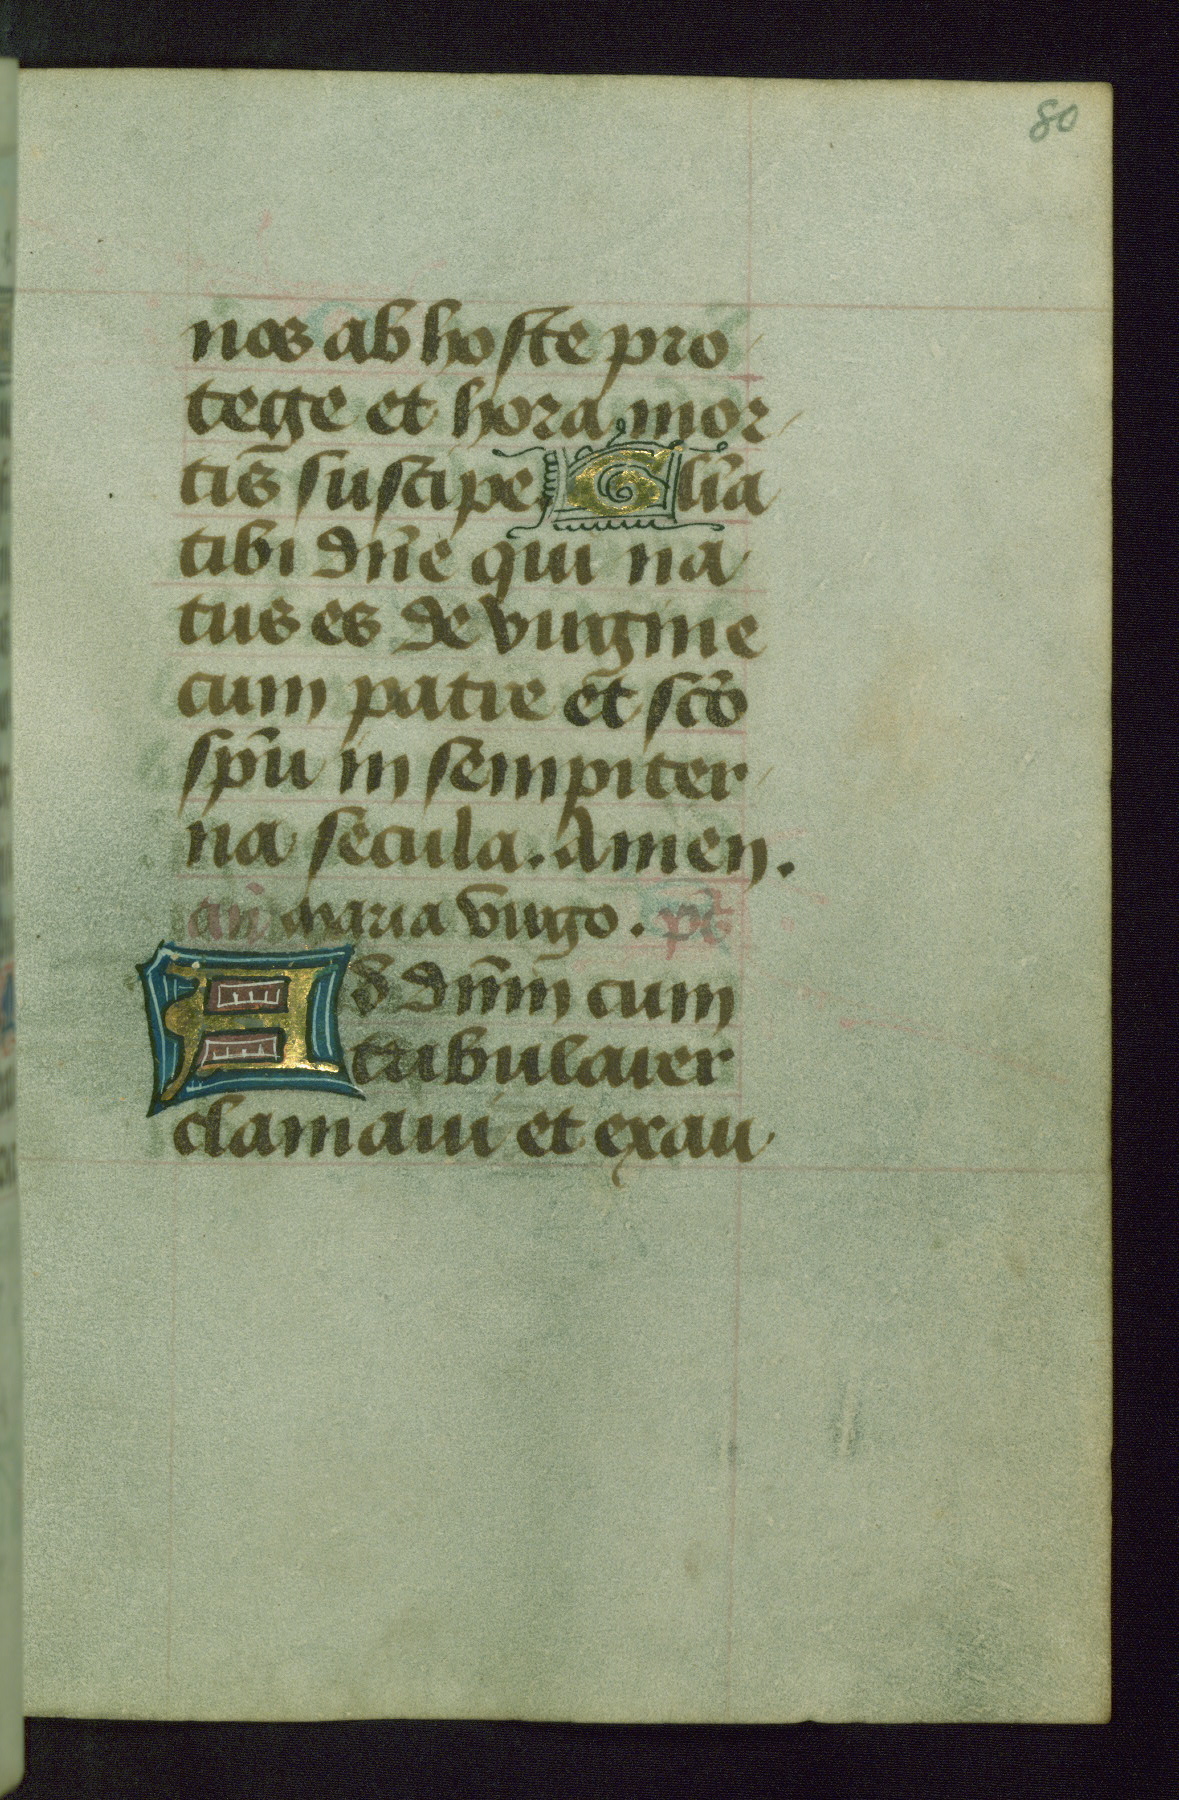 80
nos ab hoste pro
tege et hora mor
tis suscipe Glīa
tibi dn̄e qui na
tus es de virgine
cum patre et sc̄o
sp̄u in sempiter
na secula. Amen.
an̄ maria virgo. ps̄
Ad dn̄m cum
tribularer
clamavi et exau